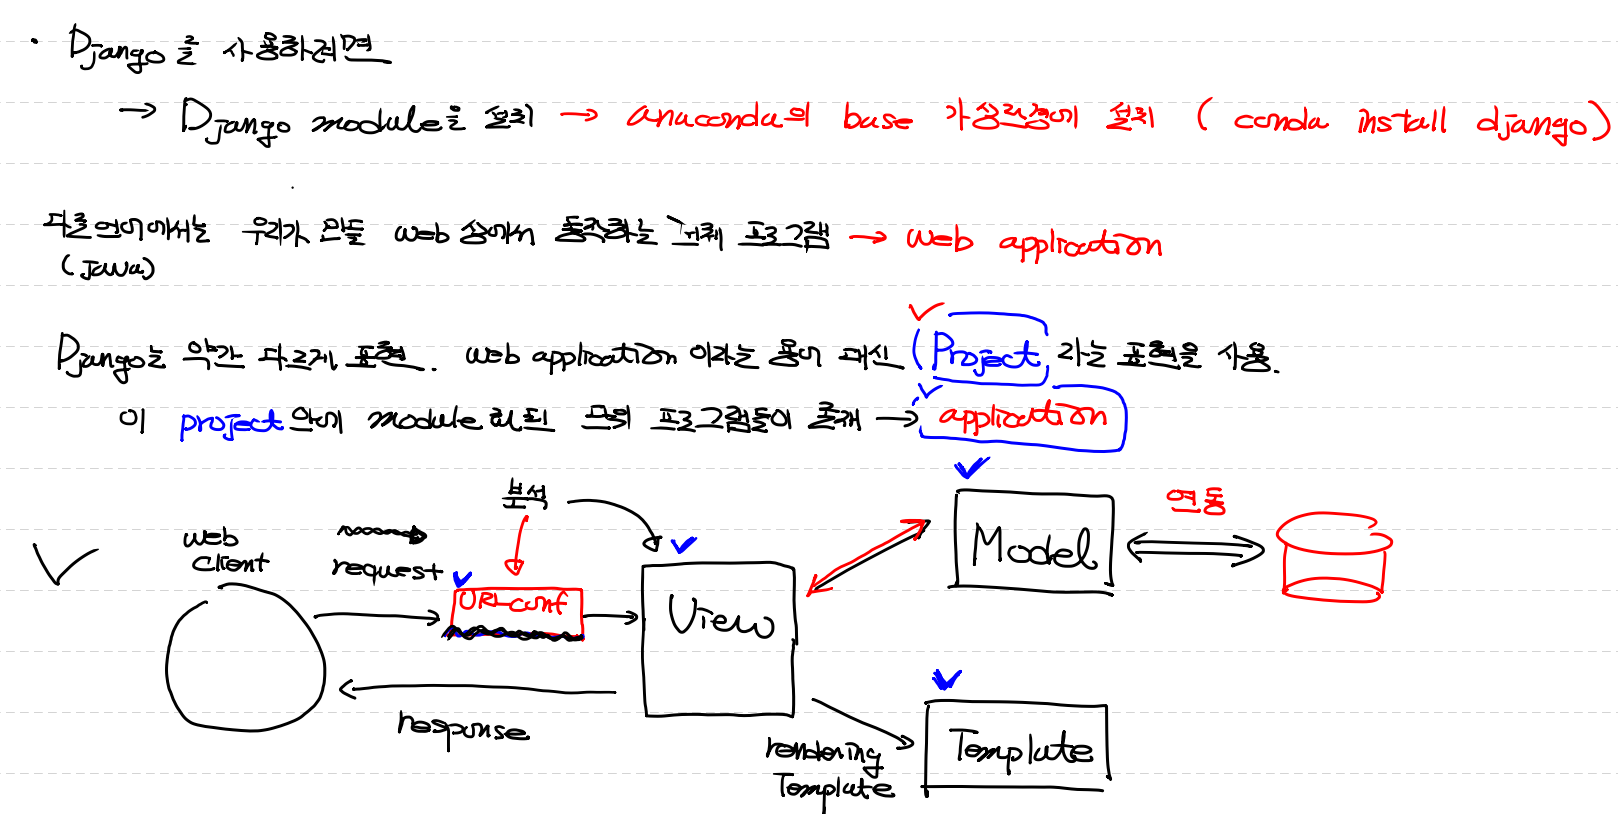 · Django를 사용하려면
→ Django module을 설치 → anaconda의 base 가상환경에 설치 ( conda install django)
다른언어에서는 우리가 만들 web 상에서 동작하는 전체 프로그램 → web application
(java)
Django는 약간 다르게 표현. web application 이라는 용어 대신 (Project 라는 표현을 사용.
이 project안에 module화된 단위 프로그램들이 존재 → application
분석
연동
web
client
request
URLconf
View
Model
response
rendering
Template
Template